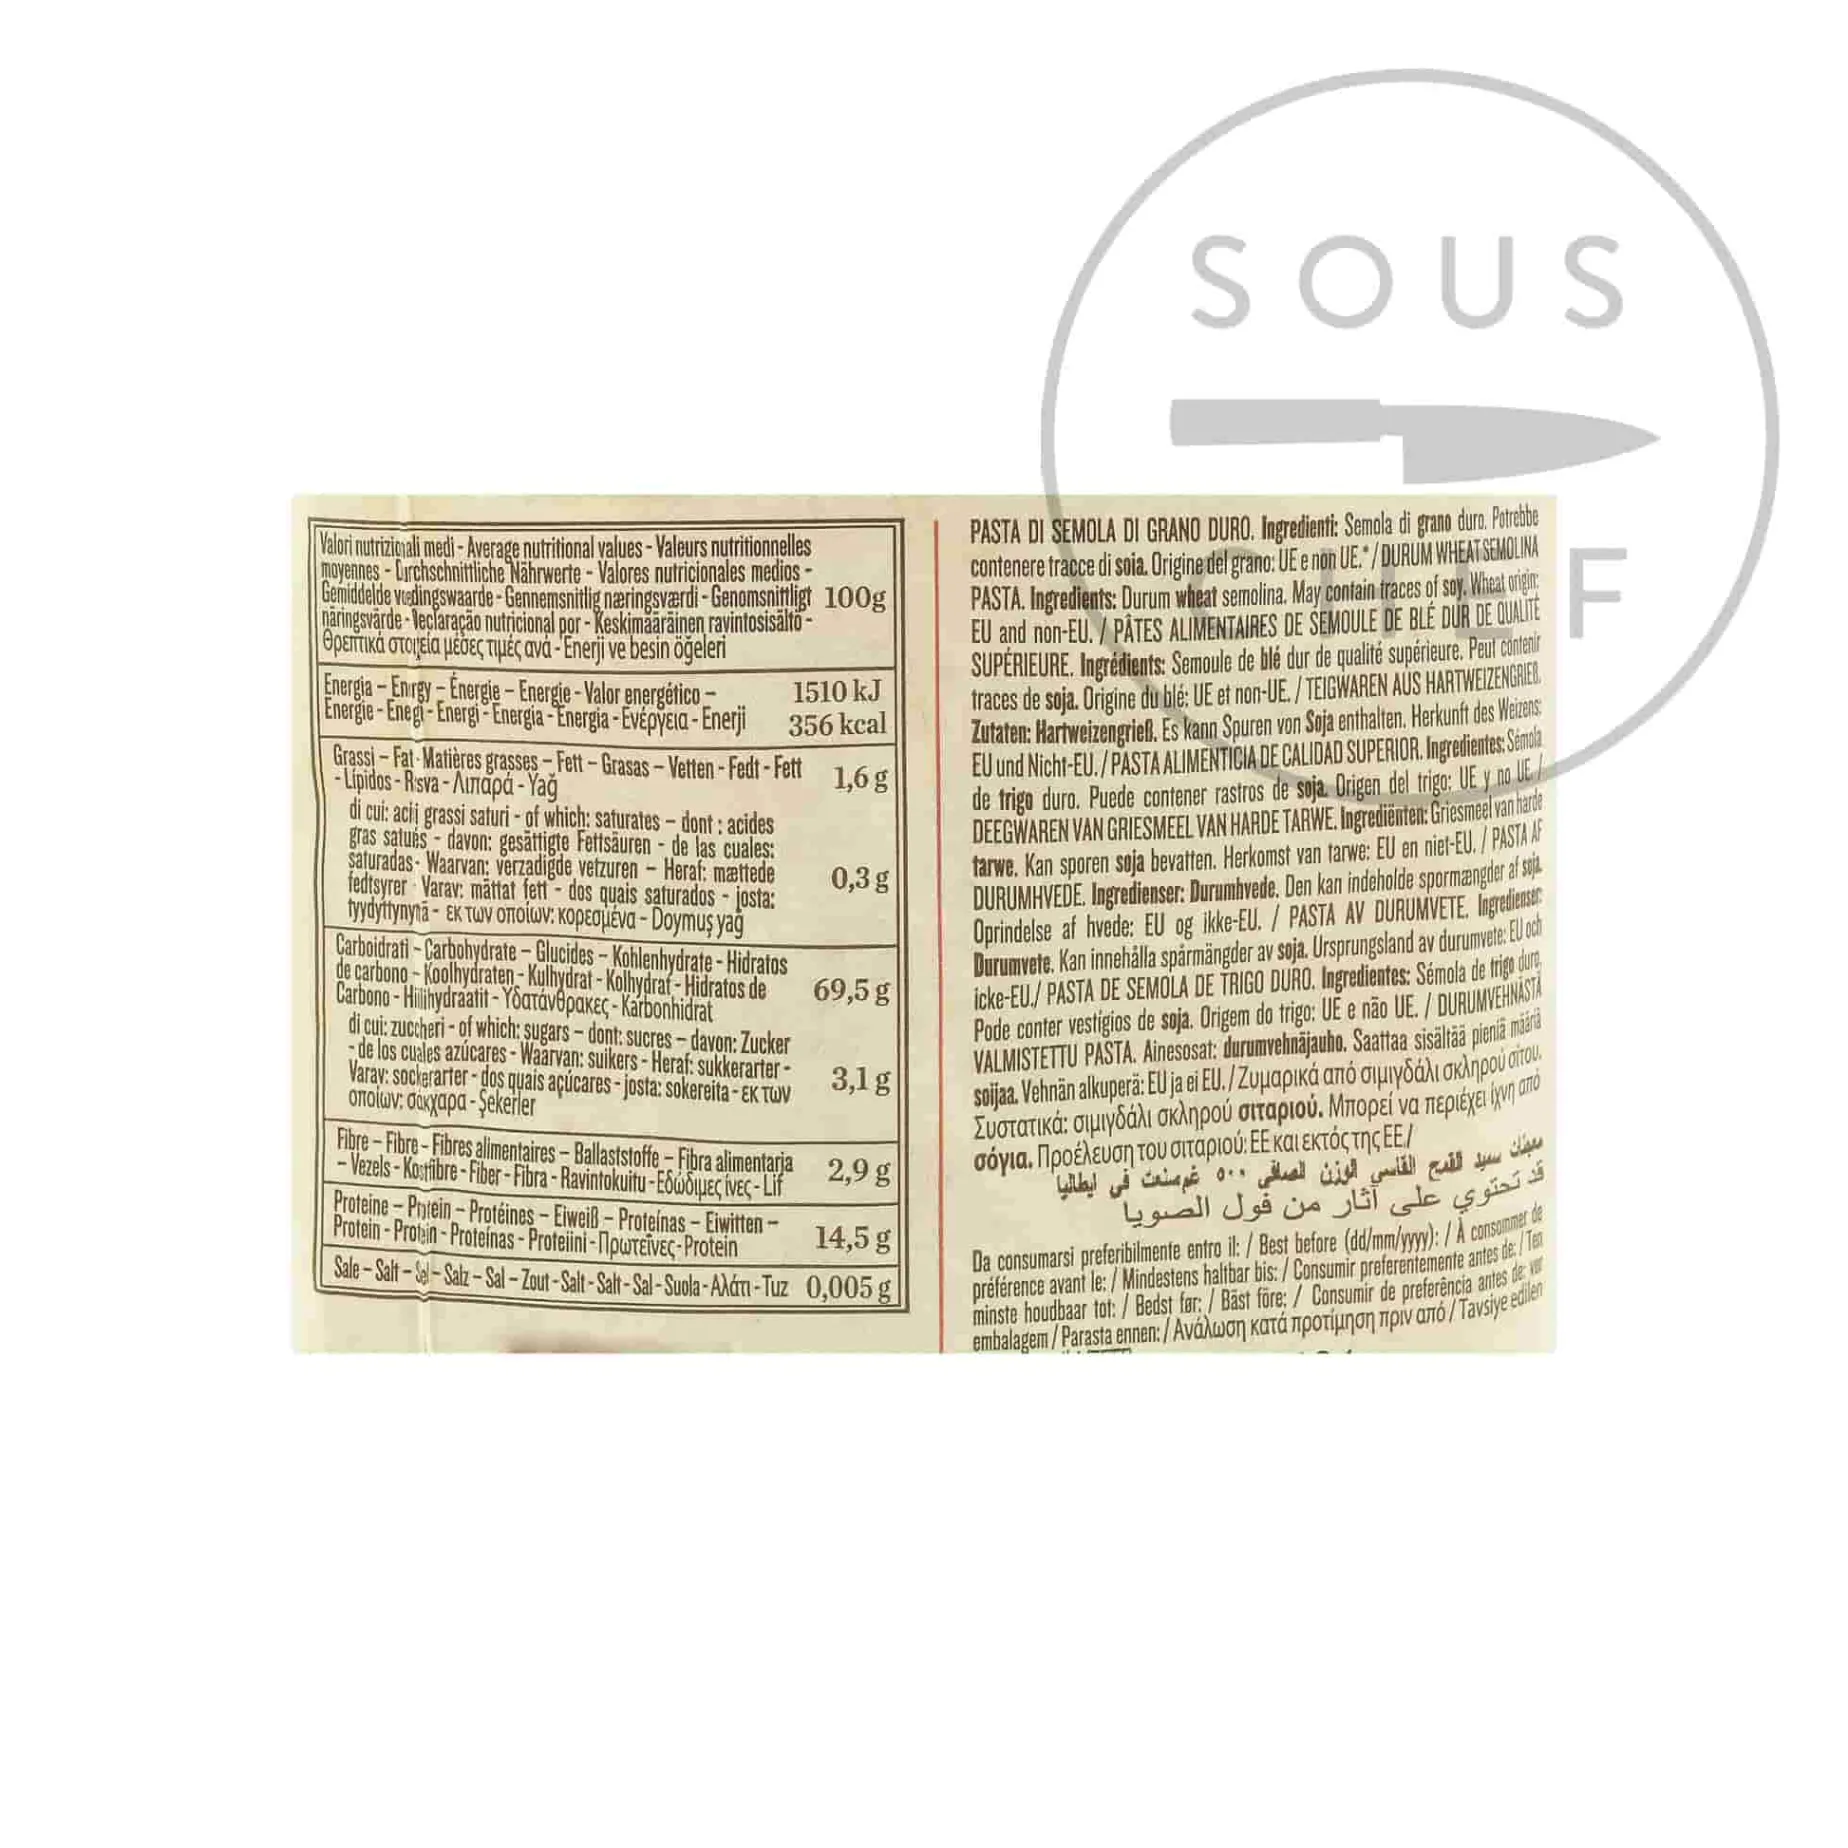 SOUS
CHEF
Valori nutrizionali medi - Average nutritional values - Valeurs nutritionnelles
moyennes - Durchschnittliche Nährwerte - Valores nutricionales medios -
Gemiddelde voedingswaarde - Gennemsnitlig næringsværdi - Genomsnittligt 100g
näringsvärde - Declaração nutricional por - Keskimääräinen ravintosisältö -
Θρεπτικά στοιχεία μέσες τιμές ανά - Enerji ve besin öğeleri
Energia – Energy – Énergie – Energie - Valor energético – 1510 kJ
Energie - Energi - Energi - Energia - Energia - Ενέργεια - Enerji 356 kcal
Grassi – Fat - Matières grasses – Fett – Grasas – Vetten - Fedt - Fett 1,6 g
- Lípidos - Rasva - Λιπαρά - Yağ
di cui: acidi grassi saturi - of which: saturates – dont : acides
gras saturés - davon: gesättigte Fettsäuren - de las cuales:
saturadas - Waarvan: verzadigde vetzuren – Heraf: mættede 0,3 g
fedtsyrer - Varav: mättat fett - dos quais saturados - josta:
tyydyttynyttä - εκ των οποίων: κορεσμένα - Doymuş yağ
Carboidrati – Carbohydrate – Glucides – Kohlenhydrate - Hidratos
de carbono - Koolhydraten - Kulhydrat - Kolhydrat - Hidratos de 69,5 g
Carbono - Hiilihydraatit - Υδατάνθρακες - Karbonhidrat
di cui: zuccheri - of which: sugars – dont: sucres – davon: Zucker
- de los cuales azúcares - Waarvan: suikers - Heraf: sukkerarter -
Varav: sockerarter - dos quais açúcares - josta: sokereita - εκ των 3,1 g
οποίων: σάκχαρα - Şekerler
Fibre – Fibre – Fibres alimentaires – Ballaststoffe – Fibra alimentaria 2,9 g
– Vezels - Kostfibre - Fiber - Fibra - Ravintokuitu - Εδώδιμες ίνες - Lif
Proteine – Protein – Protéines – Eiweiß – Proteínas – Eiwitten –
Protein - Protein - Proteínas - Proteiini - Πρωτεΐνες - Protein 14,5 g
Sale – Salt – Sel – Salz – Sal – Zout - Salt - Salt - Sal - Suola - Αλάτι - Tuz 0,005 g
PASTA DI SEMOLA DI GRANO DURO. Ingredienti: Semola di grano duro. Potrebbe
contenere tracce di soia. Origine del grano: UE e non UE.* / DURUM WHEAT SEMOLINA
PASTA. Ingredients: Durum wheat semolina. May contain traces of soy. Wheat origin:
EU and non-EU. / PÂTES ALIMENTAIRES DE SEMOULE DE BLÉ DUR DE QUALITÉ
SUPÉRIEURE. Ingrédients: Semoule de blé dur de qualité supérieure. Peut contenir
traces de soja. Origine du blé: UE et non-UE. / TEIGWAREN AUS HARTWEIZENGRIEß.
Zutaten: Hartweizengrieß. Es kann Spuren von Soja enthalten. Herkunft des Weizens:
EU und Nicht-EU. / PASTA ALIMENTICIA DE CALIDAD SUPERIOR. Ingredientes: Sémola
de trigo duro. Puede contener rastros de soja. Origen del trigo: UE y no UE /
DEEGWAREN VAN GRIESMEEL VAN HARDE TARWE. Ingrediënten: Griesmeel van harde
tarwe. Kan sporen soja bevatten. Herkomst van tarwe: EU en niet-EU. / PASTA AF
DURUMHVEDE. Ingredienser: Durumhvede. Den kan indeholde spormængder af soja.
Oprindelse af hvede: EU og ikke-EU. / PASTA AV DURUMVETE. Ingredienser:
Durumvete. Kan innehålla spårmängder av soja. Ursprungsland av durumvete: EU och
icke-EU./ PASTA DE SEMOLA DE TRIGO DURO. Ingredientes: Sémola de trigo duro.
Pode conter vestígios de soja. Origem do trigo: UE e não UE. / DURUMVEHNÄSTÄ
VALMISTETTU PASTA. Ainesosat: durumvehnäjauho. Saattaa sisältää pieniä määriä
soijaa. Vehnän alkuperä: EU ja ei EU. / Ζυμαρικά από σιμιγδάλι σκληρού σίτου.
Συστατικά: σιμιγδάλι σκληρού σιταριού. Μπορεί να περιέχει ίχνη από
σόγια. Προέλευση του σιταριού: ΕΕ και εκτός της ΕΕ /
معجنات سميد القمح القاسي الوزن الصافي ٥٠٠ غم صنعت في ايطاليا
قد تحتوي على آثار من فول الصويا
Da consumarsi preferibilmente entro il: / Best before (dd/mm/yyyy): / À consommer de
préférence avant le: / Mindestens haltbar bis: / Consumir preferentemente antes de: / Ten
minste houdbaar tot: / Bedst før: / Bäst före: / Consumir de preferência antes de: ver
embalagem / Parasta ennen: / Ανάλωση κατά προτίμηση πριν από / Tavsiye edilen